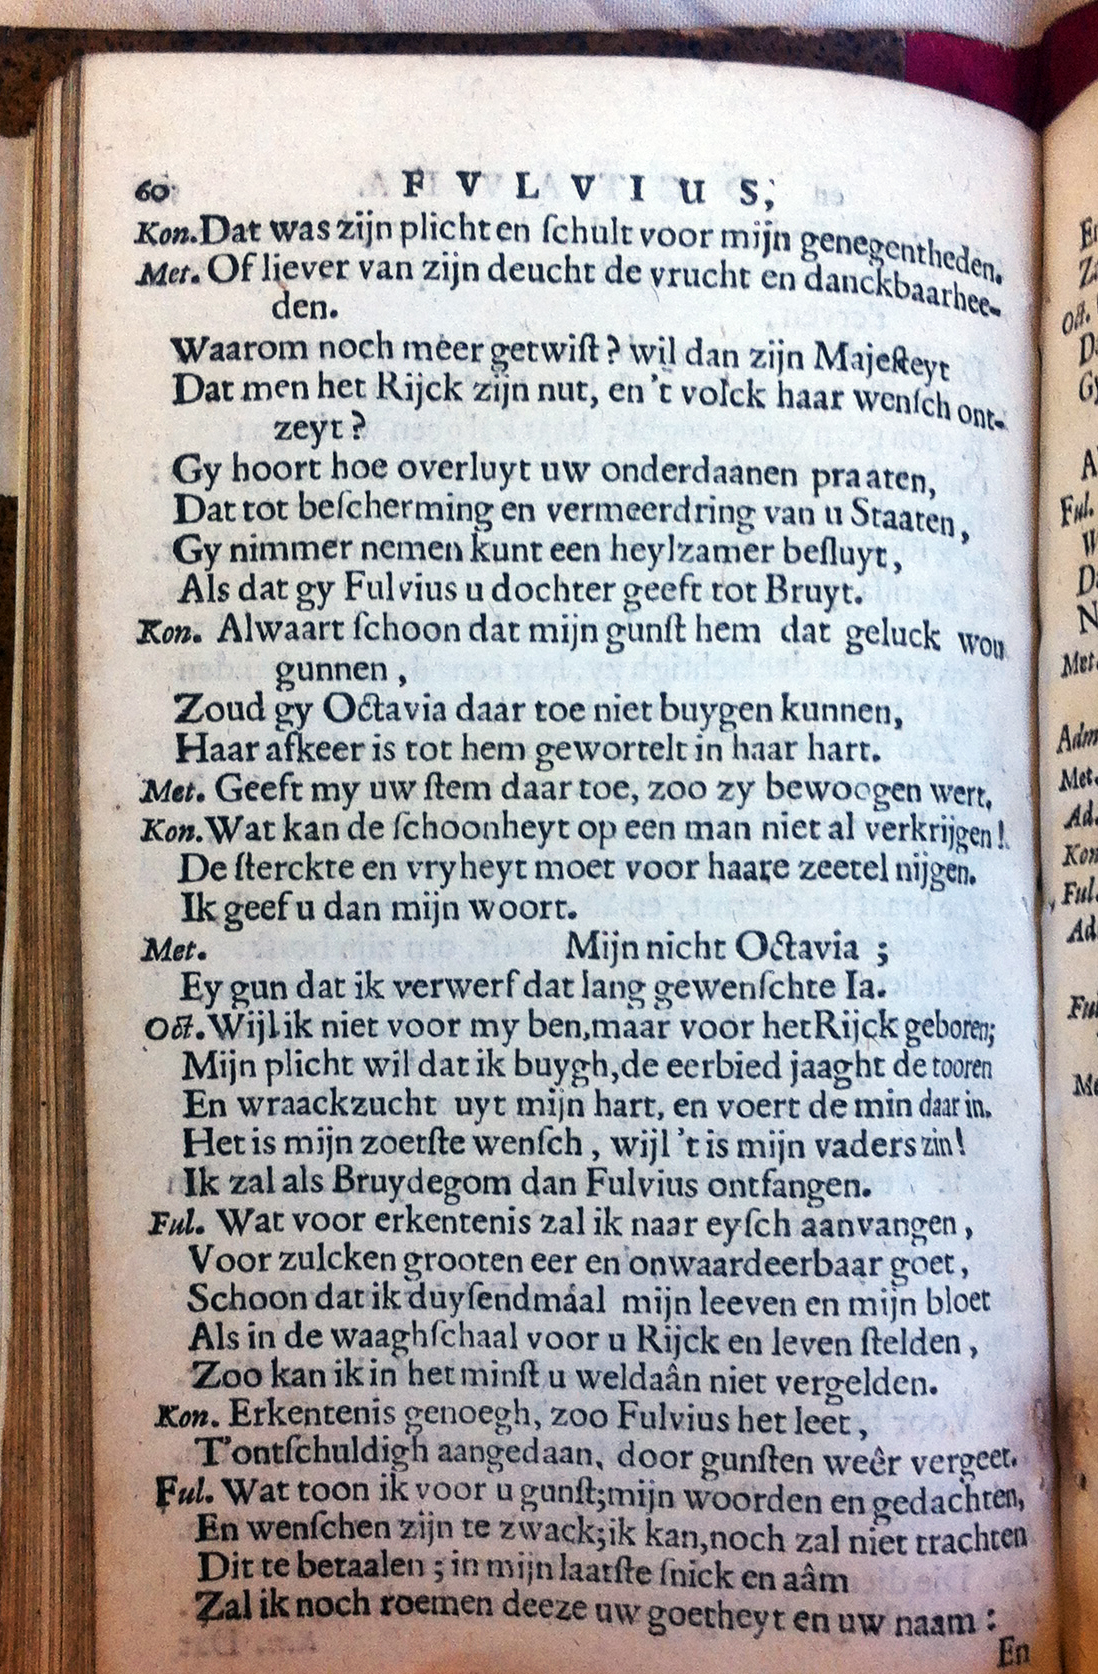 60 FVLVIUS,
Kon. Dat was zijn plicht en ſchult voor mijn genegentheden.
Met. Of liever van zijn deucht de vrucht en danckbaarhee-
den.
Waarom noch meer getwiſt? wil dan zijn Majeſteyt
Dat men het Rijck zijn nut, en 't volck haar wenſch ont-
zeyt?
Gy hoort hoe overluyt uw onderdaanen praaten,
Dat tot beſcherming en vermeerdring van u Staaten,
Gy nimmer nemen kunt een heylzamer beſluyt,
Als dat gy Fulvius u dochter geeft tot Bruyt.
Kon. Alwaart ſchoon dat mijn gunſt hem dat geluck wou
gunnen,
Zoud gy Octavia daar toe niet buygen kunnen,
Haar afkeer is tot hem gewortelt in haar hart.
Met. Geeft my uw ſtem daar toe, zoo zy bewoogen wert,
Kon. Wat kan de ſchoonheyt op een man niet al verkrijgen!
De ſterckte en vryheyt moet voor haare zeetel nijgen.
Ik geef u dan mijn woort.
Met. Mijn nicht Octavia ;
Ey gun dat ik verwerf dat lang gewenſchte Ia.
Oct. Wijl ik niet voor my ben, maar voor het Rijck geboren;
Mijn plicht wil dat ik buygh, de eerbied jaaght de tooren
En wraackzucht uyt mijn hart, en voert de min daar in.
Het is mijn zoetſte wenſch, wijl 't is mijn vaders zin!
Ik zal als Bruydegom dan Fulvius ontfangen.
Ful. Wat voor erkentenis zal ik naar eyſch aanvangen,
Voor zulcken grooten eer en onwaardeerbaar goet,
Schoon dat ik duyſendmaal mijn leeven en mijn bloet
Als in de waaghſchaal voor u Rijck en leven ſtelden,
Zoo kan ik in het minſt u weldaân niet vergelden.
Kon. Erkentenis genoegh, zoo Fulvius het leet,
T'ontſchuldigh aangedaan, door gunſten weêr vergeet.
Ful. Wat toon ik voor u gunſt; mijn woorden en gedachten,
En wenſchen zijn te zwack; ik kan, noch zal niet trachten
Dit te betaalen ; in mijn laatſte ſnick en aâm
Zal ik noch roemen deeze uw goetheyt en uw naam :
En